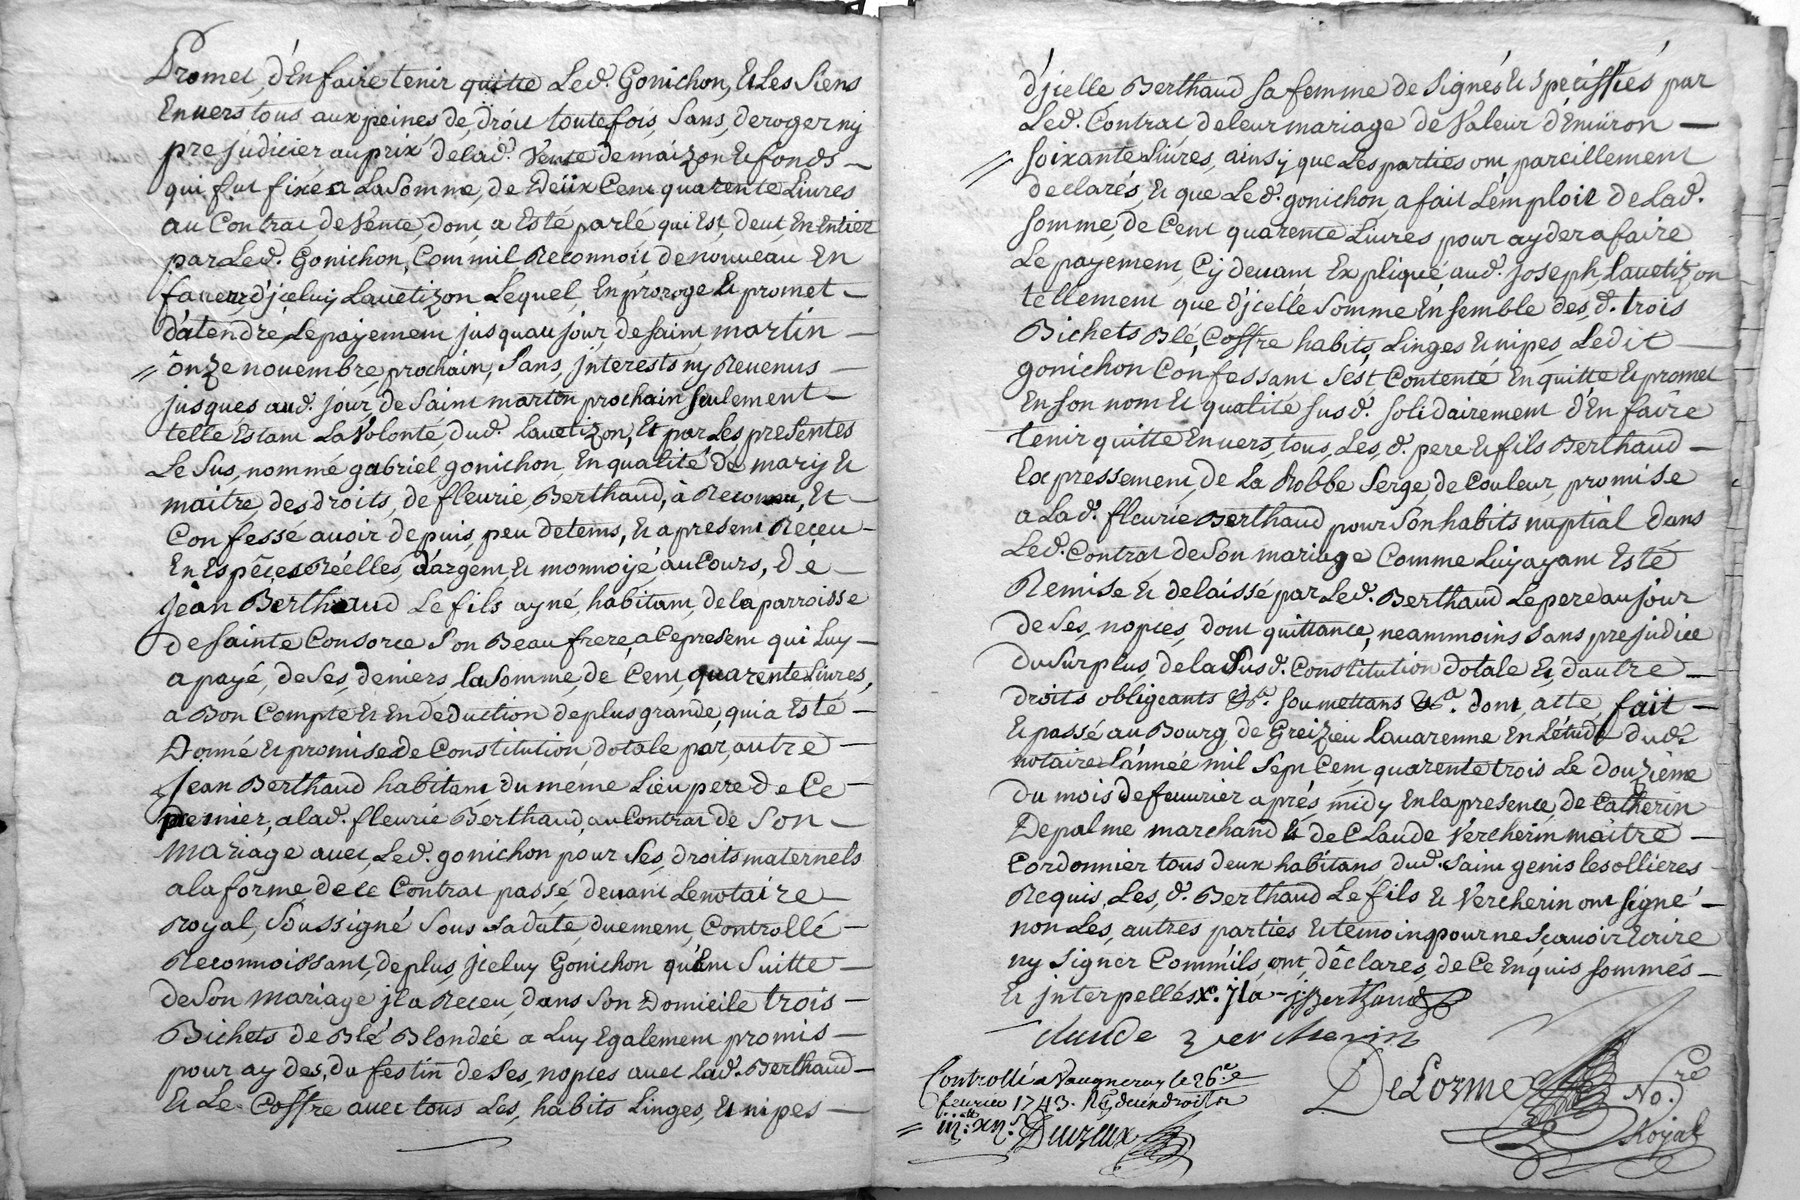 Promet, d'En faire tenir quitte Led. Gonichon, & Les Siens
Envers tous aux peines de, droit toutefois, Sans, deroger ny
prejudicier au prix delad. Vente de maizon & fonds —
qui fut fixé a La Somme, de Deux Cent quarente Livres
au Contrat, de Vente, dont a Esté parlé qui Est, deut, En Entier
par Led. Gonichon, Comm'il Reconnoit de nouveau En
faveur, d'jceluy Lavetizon Lequel, En proroge & promet —
d'atendre, Le payement jusquau jour, de saint martin —
ônze novembre, prochain, Sans, jnterests ny Revenus —
jusques aud. jour, de Saint martin prochain seulement —
telle Estant La Volonté, dud. Lavetizon, Et par Les, presentes
Le Sus, nommé gabriel, gonichon En qualité de mary &
maitre, des droits, de fleurie, Berthaud, à Reconnu, Et —
Confessé avoir depuis, peu de tems, & apresent Reçeu —
En Espêces Réelles, d'argent, & monnoïe, au Cours, De —
Jean Berthaud Le fils ayné, habitant, de la parroisse
de Sainte Consorce Son Beaufrere, a Ce present qui Luy —
a payé, de Ses, deniers, la Somme, de Cent, quarente Livres,
a Bon Compte & En deduction de plus grande, qui a Esté —
Donné & promise de Constitution, dotale par, autre —
Jean Berthaud habitant du même Lieu pere de Ce —
premier, a lad. fleurie Berthaud, au Contrat de Son —
Mariage avec, Led. gonichon pour Ses, droits maternels
a la forme de ce Contrat passé, devant Le notaire —
Royal, Soussigné Sous Sa date, duement, Controllé —
Reconnoissant, de plus, jceluy Gonichon qu'En Suitte —
de Son Mariage jl a Receu, dans Son Domicile trois —
Bichets de Blé Blondée a Luy Egalement promis —
pour ay des, du festin de Ses, nopces avec Lad. Berthaud —
& Le Coffre avec tous Les, habits Linges, & nipes —
d'jcelle Berthaud Sa femme de Signés & Speciffiés par
Led. Contrat de leur mariage de Valeur d'Environ —
Soixante Livres, ainsy que Les parties ont pareillement
declarés, & que Led. gonichon, a fait L'emploit de Lad.
Somme, de Cent quarente Livres pour ayder a faire
Le payement, Cy devant Expliqué, aud. Joseph, Lavetizon
tellement que d'jcelle Somme Ensemble des, d. trois
Bichets Blé, Coffre habits, Linges & nipes, Ledit —
gonichon Confessant S'est Contenté En quitte & promet
En Son nom & qualité Susd. Solidairement d'En faire
tenir quitte Envers, tous, Les, d. pere & fils Berthaud —
Expressement, de La Robbe Serge, de Couleur, promise
a Lad. fleurie Berthaud pour Son habits nuptial Dans
Led. Contrat de Son mariage Comme Luy ayant Esté
Remise & delaissé par Led. Berthaud Le pere au jour
de Ses, nopces, dont quittance, neammoins Sans prejudice
du Surplus, de la Susd. Constitution dotale &, d'autre —
droits obligeants &a. Soumettans &a. dont, atte fait —
& passé au Bourg, de Greizieu Lavarenne En L'étude dud.
notaire L'année mil Sept Cent, quarente trois Le Douzieme
Du mois de fevvrier aprés midy En la presence, de Catherin
Depalme marchand & de Claude Vercherin maître —
Cordonnier tous deux habitans, dud. Saint genis les ollieres
Requis, Les, d. Berthaud Le fils & Vercherin ont signé —
non Les, autres parties & temoins pour ne Sçavoir Ecrire
ny Signer Comm'ils, ont, déclares, de Ce Enquis Sommés —
& jnterpellés jla — J. Berthaud
Claude Vercherin
Controllé a Vaugneray le 26e.
fevrier 1743.
Delorme No.re
Royal